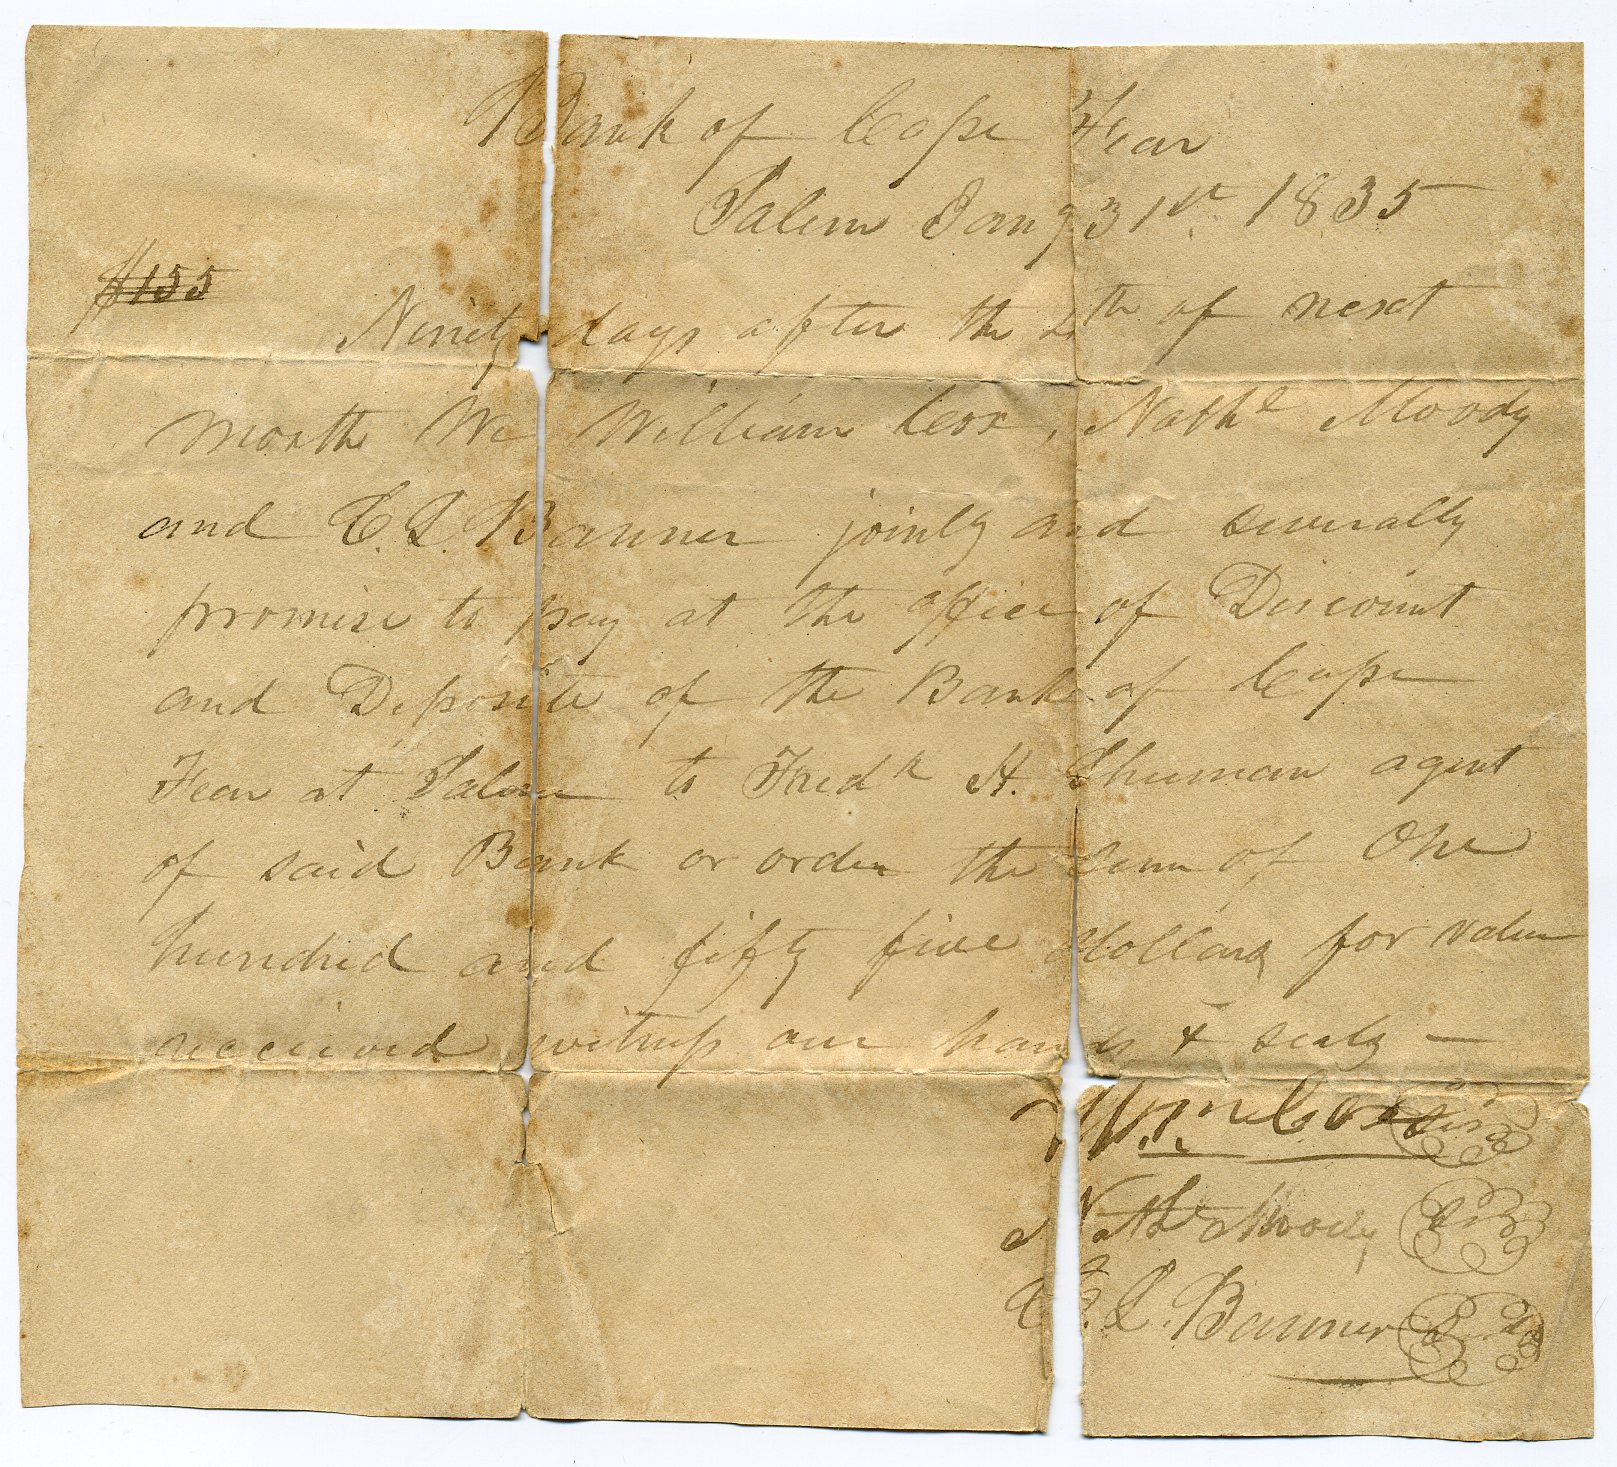 Bank of Cape Fear
Salem Jany 31st 1835
$155
Ninety days after the th of next
month We William Cox, Nathl Moody
and C. L. Banner jointly and severally
promise to pay at the office of Discount
and Deposite of the Bank of Cape
Fear at Salem to Fredk H. Shuman agent
of said Bank or order the sum of One
hundred and fifty five dollars for value
received witness our hands & seals —
Wm Cox
Nathl Moody
C. L. Banner